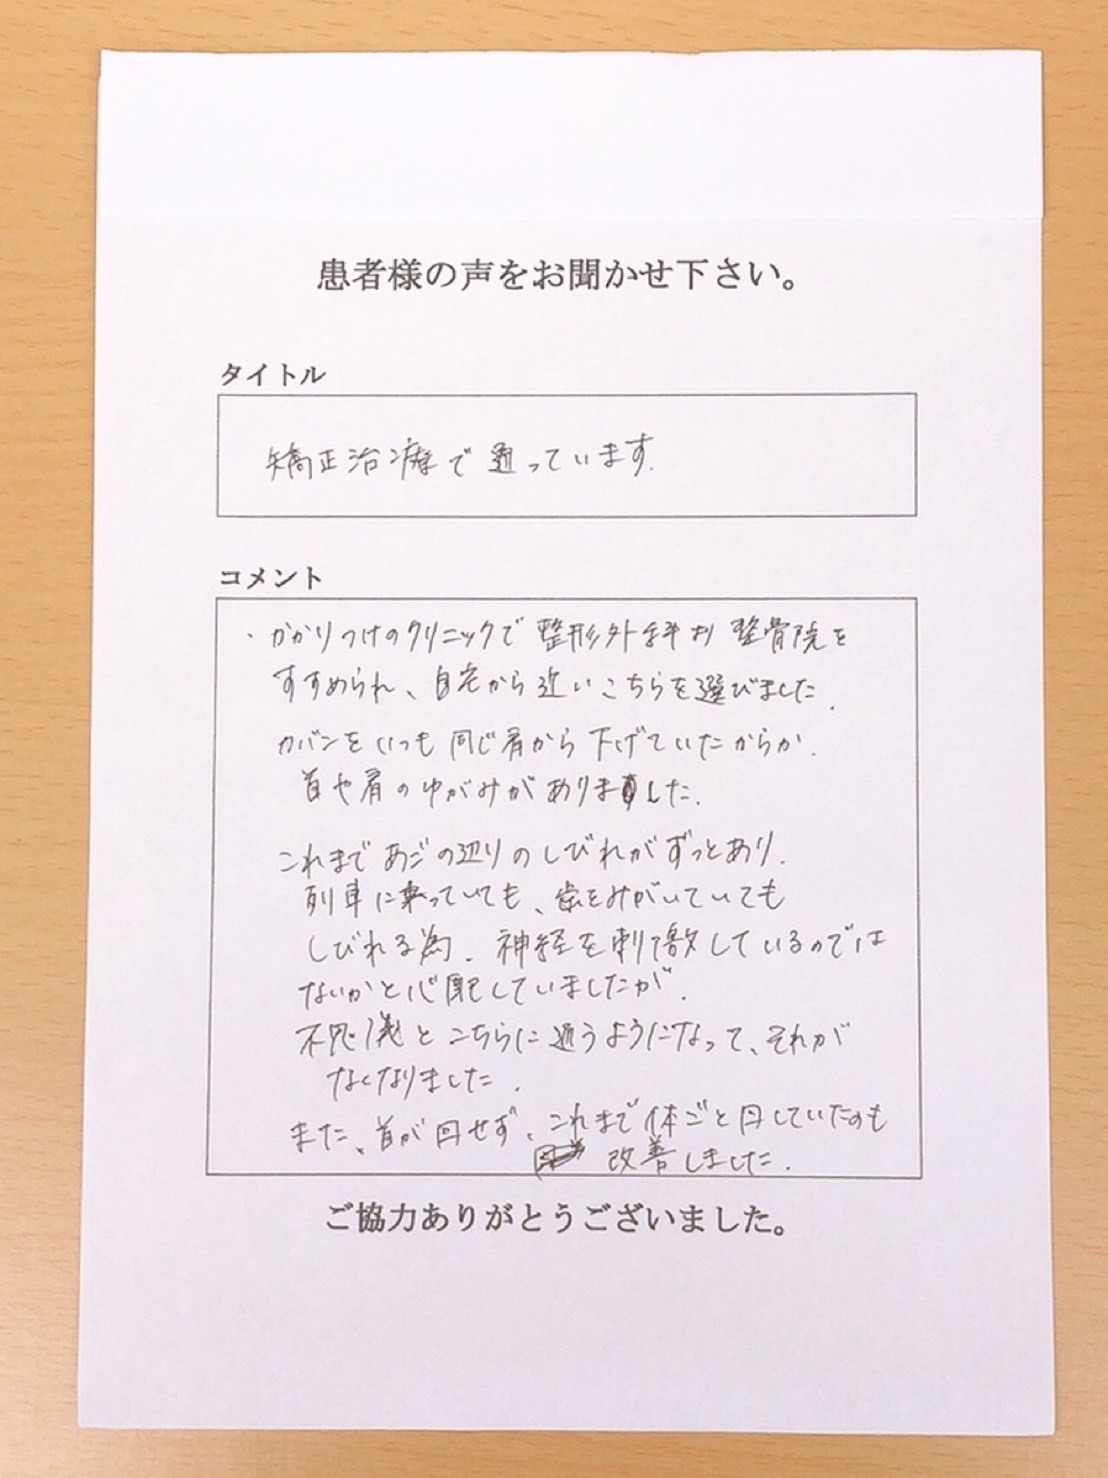 患者様の声をお聞かせ下さい。
タイトル
矯正治療で通っています.
コメント
・かかりつけのクリニックで整形外科より整骨院を
すすめられ、自宅から近いこちらを選びました.
カバンをいつも同じ肩から下げていたからか.
首や肩のゆがみがありました.
これまであごの辺りのしびれがずっとあり.
列車に乗っていても、歯をみがいていても
しびれる為. 神経を刺激しているのでは
ないかと心配していましたが.
不思議とこちらに通うようになって、それが
なくなりました.
また、首が回せず、これまで体ごと回していたのも
改善しました.
ご協力ありがとうございました。